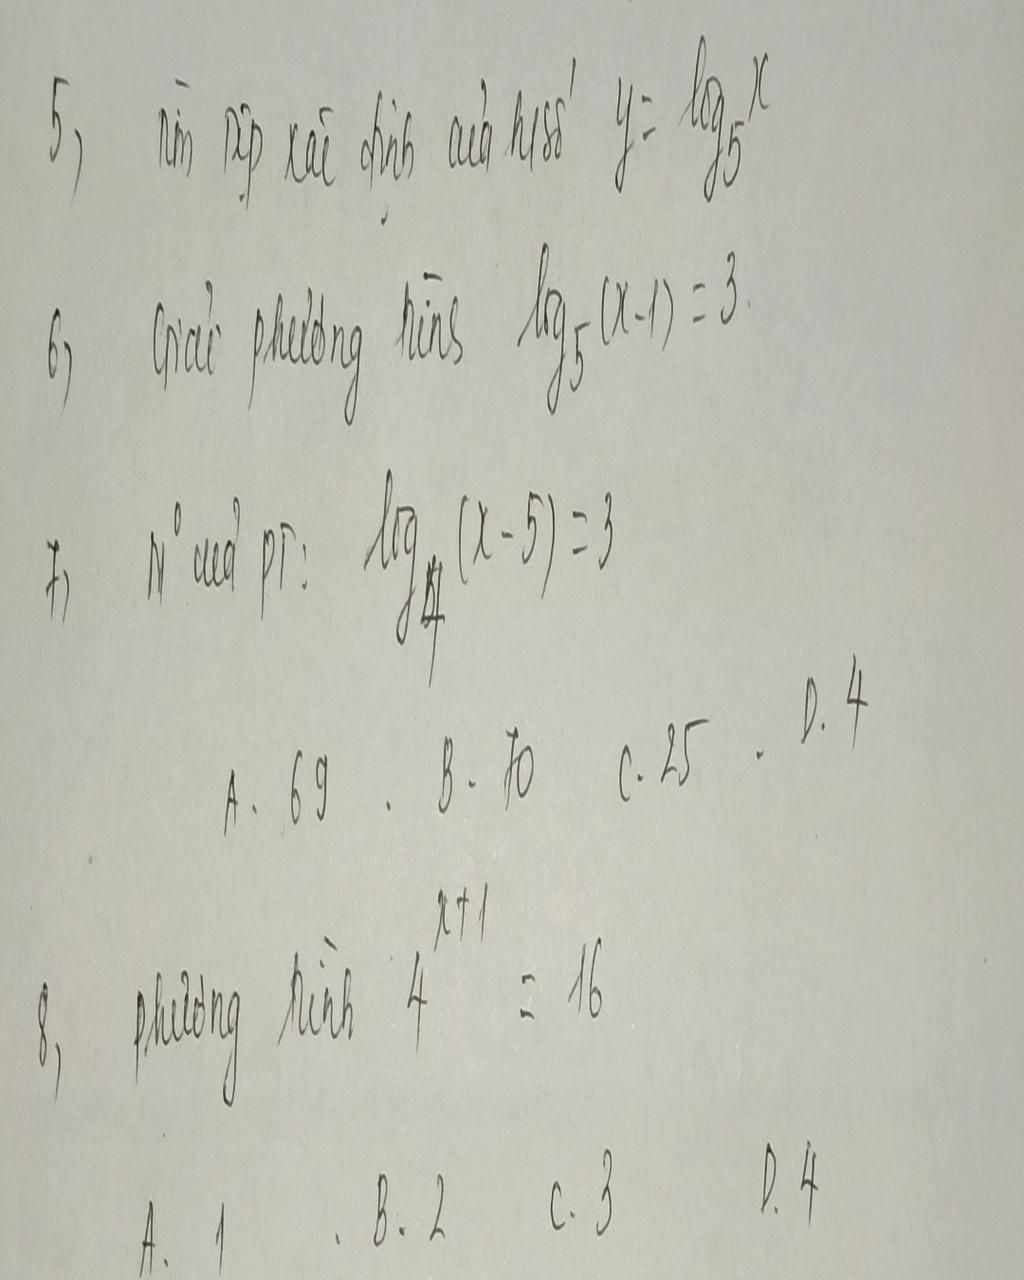 5, Tìm tập xác định của h/số y = log₅x
6, Giải phương trình log₅(x-1) = 3.
7, N⁰ của PT: log₄(x-5) = 3
A. 69 . B. 70 C. 25 . D. 4
8, phương trình 4ˣ⁺¹ = 16
A. 1 . B. 2 C. 3 D. 4